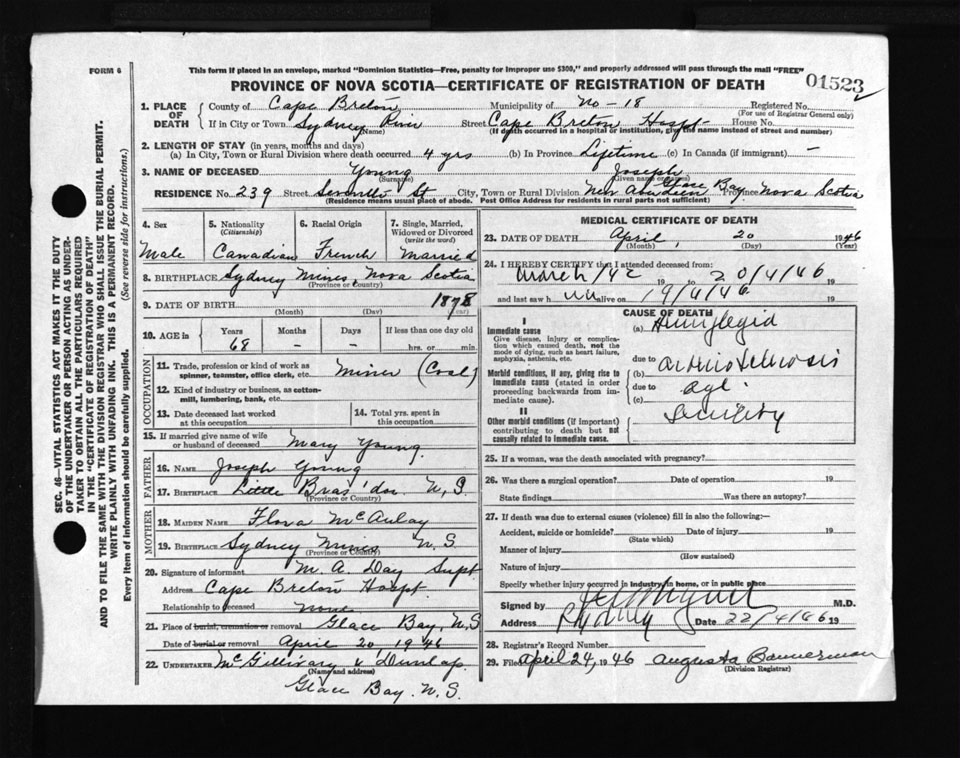 FORM 6
This form if placed in an envelope, marked "Dominion Statistics—Free, penalty for improper use $300," and properly addressed will pass through the mail "FREE"
PROVINCE OF NOVA SCOTIA—CERTIFICATE OF REGISTRATION OF DEATH
01523
SEC. 46—VITAL STATISTICS ACT MAKES IT THE DUTY
OF THE UNDERTAKER OR PERSON ACTING AS UNDER-
TAKER TO OBTAIN ALL THE PARTICULARS REQUIRED
IN THE "CERTIFICATE OF REGISTRATION OF DEATH"
AND TO FILE THE SAME WITH THE DIVISION REGISTRAR WHO SHALL ISSUE THE BURIAL PERMIT.
WRITE PLAINLY WITH UNFADING INK. THIS IS A PERMANENT RECORD.
Every item of information should be carefully supplied. (See reverse side for instructions.)
1. PLACE OF DEATH
County of Cape Breton Municipality of No - 18 Registered No.
(For use of Registrar General only)
If in City or Town Sydney River Street Cape Breton Hospt- House No.
(Name) (If death occurred in a hospital or institution, give the name instead of street and number)
2. LENGTH OF STAY (in years, months and days)
(a) In City, Town or Rural Division where death occurred 4 yrs (b) In Province Lifetime (c) In Canada (if immigrant) -
3. NAME OF DECEASED Young Joseph
(Surname) (Given name or names)
RESIDENCE No. 239 Street St City, Town or Rural Division New Aberdeen Glace Bay Province Nova Scotia
(Residence means usual place of abode. Post Office Address for residents in rural parts not sufficient)
4. Sex Male
5. Nationality (Citizenship) Canadian
6. Racial Origin French
7. Single, Married, Widowed or Divorced (write the word) married
8. BIRTHPLACE Sydney Mines Nova Scotia
(Province or Country)
9. DATE OF BIRTH 1878
(Month) (Day) (Year)
10. AGE in Years Months Days If less than one day old
68 - - hrs. or min.
OCCUPATION
11. Trade, profession or kind of work as spinner, teamster, office clerk, etc. Miner (Coal)
12. Kind of industry or business, as cotton-mill, lumbering, bank, etc.
13. Date deceased last worked at this occupation
14. Total yrs. spent in this occupation
15. If married give name of wife or husband of deceased Mary Young.
FATHER
16. NAME Joseph Young
17. BIRTHPLACE Little Bras'dor N.S.
(Province or Country)
MOTHER
18. MAIDEN NAME Flora McAulay
19. BIRTHPLACE Sydney Mines N.S.
(Province or Country)
20. Signature of informant M. A. Day Supt
Address Cape Breton Hospt.
Relationship to deceased none
21. Place of burial, cremation or removal Glace Bay, N.S
Date of burial or removal April 20 1946
22. UNDERTAKER McGillivary & Dunlap
(Name and address)
Glace Bay. N.S.
MEDICAL CERTIFICATE OF DEATH
23. DATE OF DEATH April, 20 1946
(Month) (Day) (Year)
24. I HEREBY CERTIFY that I attended deceased from:
March/42 19 to 20/4/46 19
and last saw h im alive on 19/4/46 19
CAUSE OF DEATH
I
Immediate cause
Give disease, injury or complication which caused death, not the mode of dying, such as heart failure, asphyxia, asthenia, etc.
(a) Hemiplegia
due to
Morbid conditions, if any, giving rise to immediate cause (stated in order proceeding backwards from immediate cause).
(b) arteriosclerosis
due to
(c) age
II
Other morbid conditions (if important) contributing to death but not causally related to immediate cause.
Senility
25. If a woman, was the death associated with pregnancy?
26. Was there a surgical operation? Date of operation 19
State findings Was there an autopsy?
27. If death was due to external causes (violence) fill in also the following:—
Accident, suicide or homicide? Date of injury 19
(State which)
Manner of injury
(How sustained)
Nature of injury
Specify whether injury occurred in industry, in home, or in public place
Signed by M.D.
Address Sydney Date 22/4/46 19
28. Registrar's Record Number
29. Filed April 24, 1946 Augusta Bannerman
(Division Registrar)